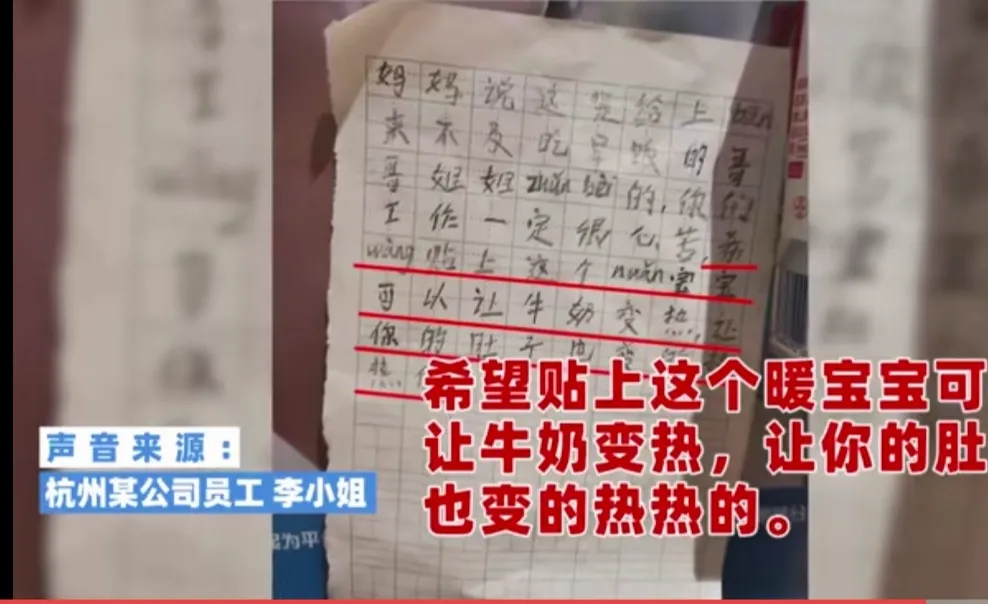 妈妈说这是给上bān
来不及吃早饭的哥
哥姐姐zhǔn bèi的,你的
工作一定很心苦,希
wàng贴上这个nuǎn宝宝
可以让牛奶变热,让
你的肚子也变的
热
希望贴上这个暖宝宝可
让牛奶变热，让你的肚
也变的热热的。
声音来源：
杭州某公司员工 李小姐
为平